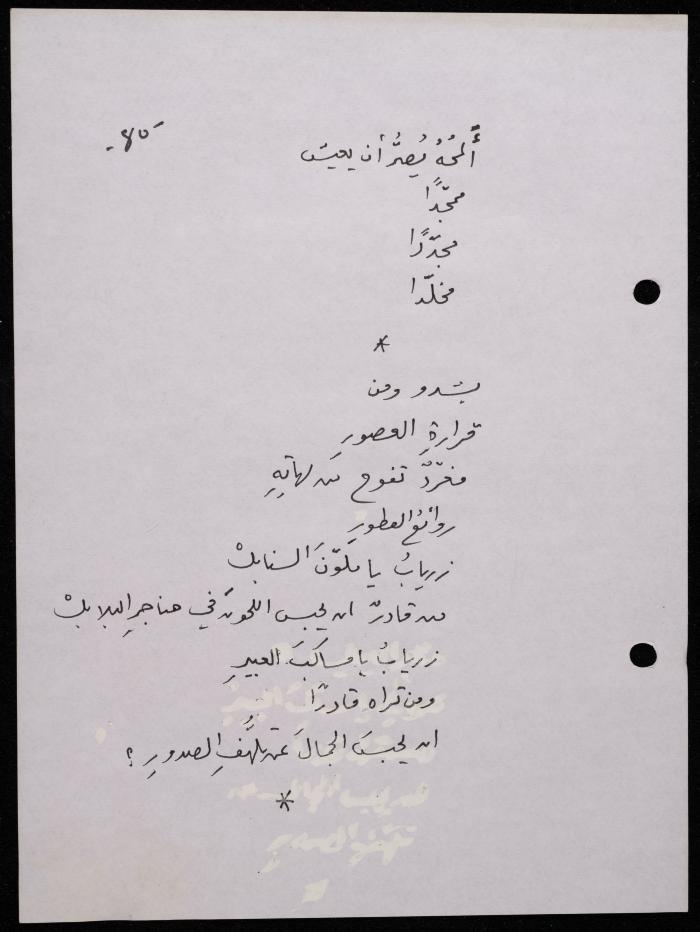 -٤٥-
ألمحُهُ يُصرُّ أن يعيش
ممجّدًا
مجدّدًا
مخلّدا
*
يشدو ومن
قرارةِ العصورِ
مغرّدٌ تفوح من لهاتِهِ
روائعُ العطورِ
زريابُ يا ملوّنَ السنابلْ
من قادرٌ ان يحبس اللحونَ في حناجرِ البلابلْ
زريابُ يا مساكبَ العبيرِ
ومن تراه قادرًا
ان يحبسَ الجمالَ عن تلهُّفِ الصدورِ ؟
*